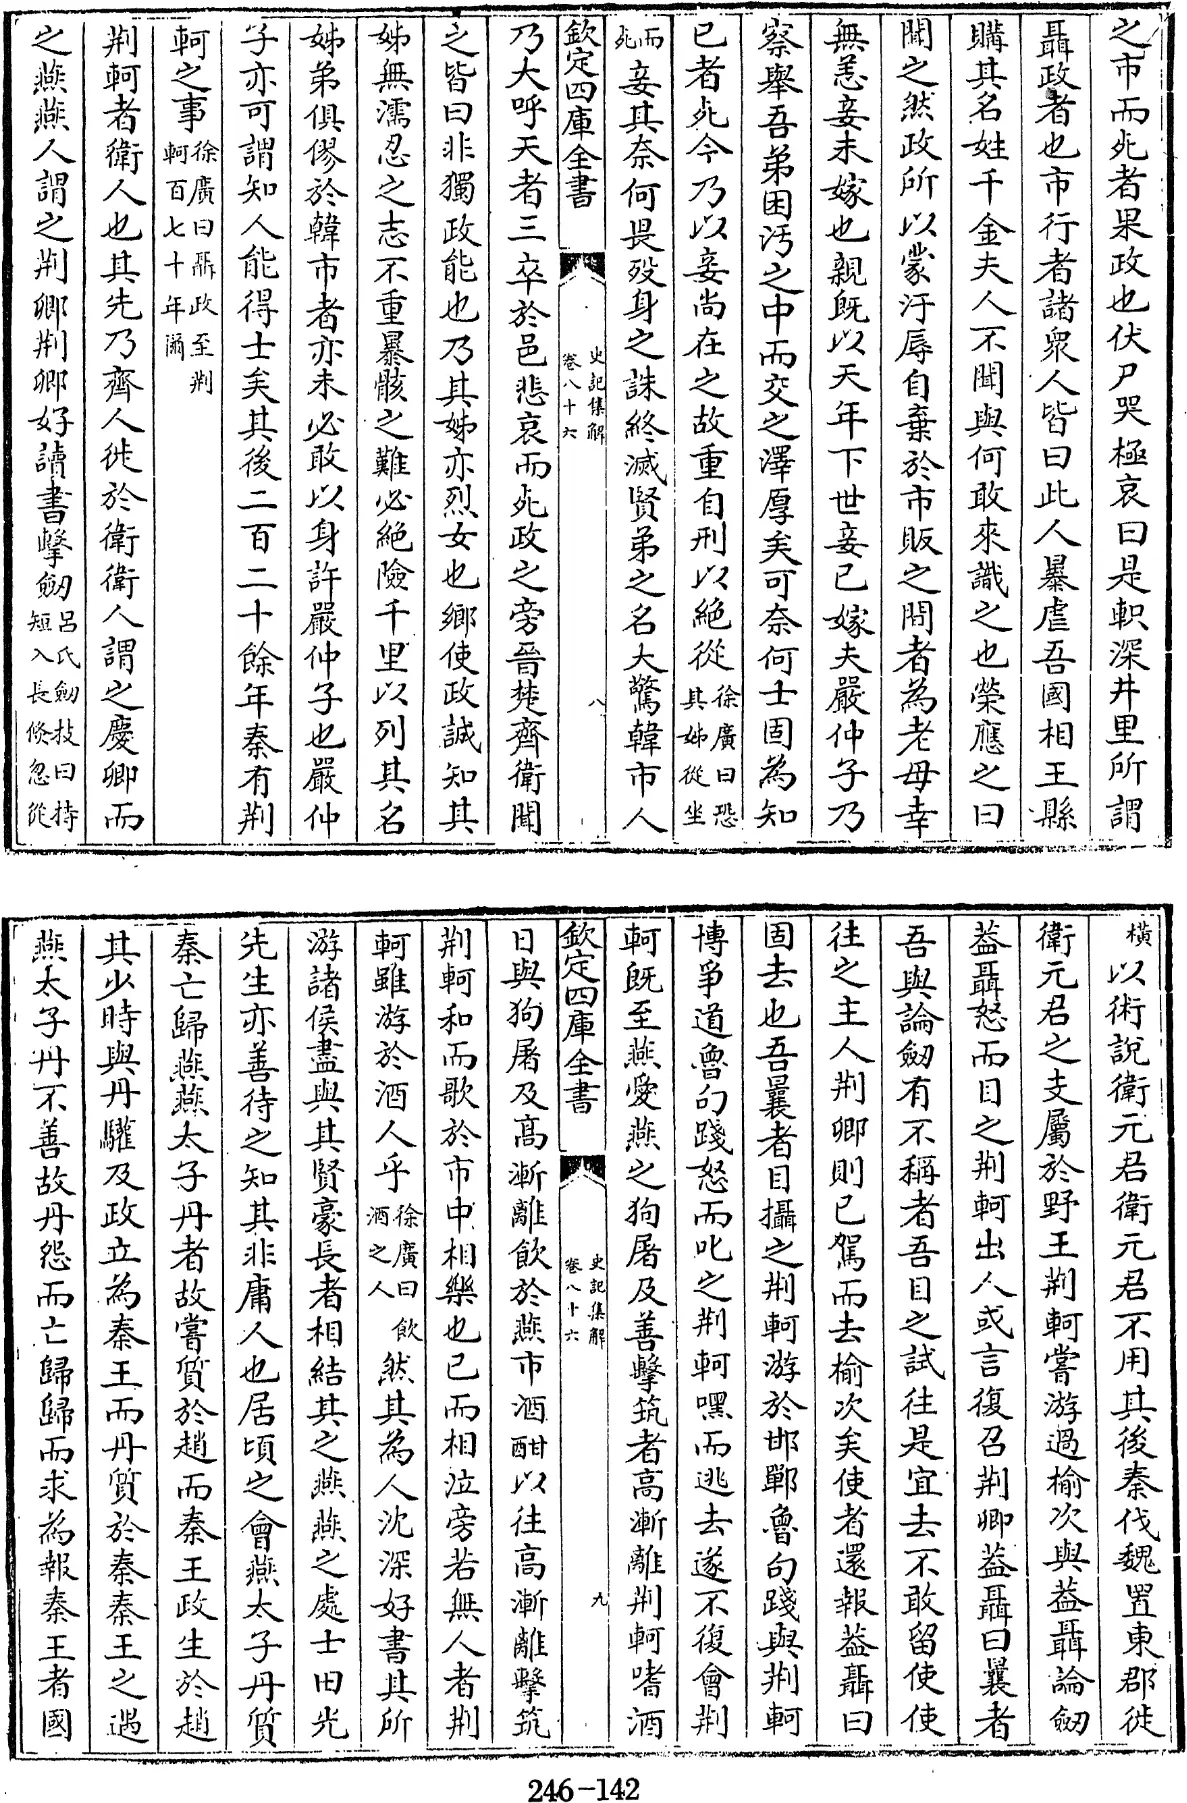 之市而死者果政也伏尸哭極哀曰是軹深井里所謂
聶政者也市行者諸衆人皆曰此人暴虐吾國相王縣
購其名姓千金夫人不聞與何敢來識之也榮應之曰
聞之然政所以蒙汙辱自棄於市販之間者為老母幸
無恙妾未嫁也親既以天年下世妾已嫁夫嚴仲子乃
察舉吾弟困汚之中而交之澤厚矣可奈何士固為知
已者死今乃以妾尚在之故重自刑以絶從徐廣曰恐其姊從坐
而死妾其奈何畏殁身之誅終滅賢弟之名大驚韓市人
欽定四庫全書 史記集解卷八十六 八
乃大呼天者三卒於邑悲哀而死政之旁晉楚齊衛聞
之皆曰非獨政能也乃其姊亦烈女也鄉使政誠知其
姊無濡忍之志不重暴骸之難必絶險千里以列其名
姊弟俱僇於韓市者亦未必敢以身許嚴仲子也嚴仲
子亦可謂知人能得士矣其後二百二十餘年秦有荆
軻之事徐廣曰聶政至荆軻百七十年爾
荆軻者衛人也其先乃齊人徙於衛衛人謂之慶卿而
之燕燕人謂之荆卿荆卿好讀書擊劒呂氏劒技曰持短入長倐忽從
横以術說衛元君衛元君不用其後秦伐魏置東郡徙
衛元君之支屬於野王荆軻嘗游過榆次與葢聶論劒
葢聶怒而目之荆軻出人或言復召荆卿葢聶曰曩者
吾與論劒有不稱者吾目之試往是宜去不敢留使使
往之主人荆卿則已駕而去榆次矣使者還報葢聶曰
固去也吾曩者目攝之荆軻游於邯鄲魯句踐與荆軻
博爭道魯句踐怒而叱之荆軻嘿而逃去遂不復會荆
軻既至燕愛燕之狗屠及善擊筑者高漸離荆軻嗜酒
欽定四庫全書 史記集解卷八十六 九
日與狗屠及高漸離飲於燕市酒酣以往高漸離擊筑
荆軻和而歌於市中相樂也已而相泣旁若無人者荆
軻雖游於酒人乎徐廣曰飲酒之人然其為人沈深好書其所
游諸侯盡與其賢豪長者相結其之燕燕之處士田光
先生亦善待之知其非庸人也居頃之會燕太子丹質
秦亡歸燕燕太子丹者故嘗質於趙而秦王政生於趙
其少時與丹驩及政立為秦王而丹質於秦秦王之遇
燕太子丹不善故丹怨而亡歸歸而求為報秦王者國
246-142